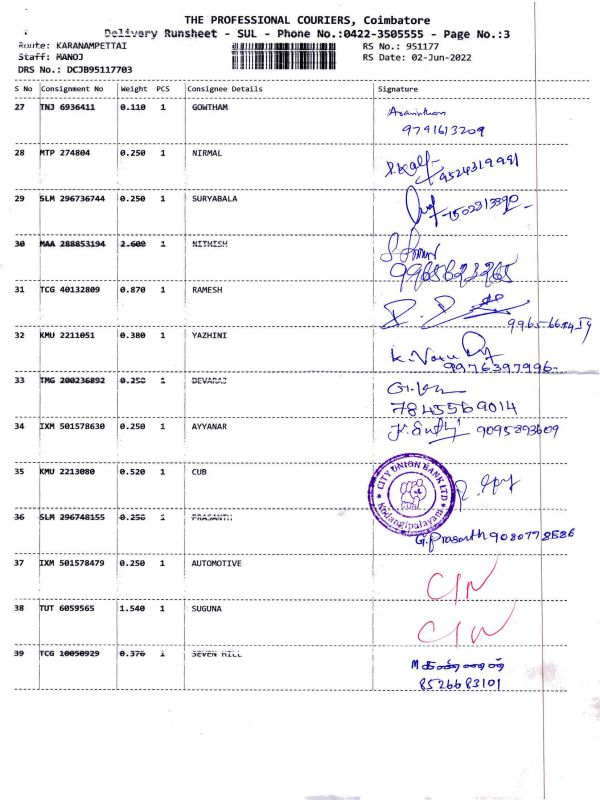 THE PROFESSIONAL COURIERS, Coimbatore
Delivery Runsheet - SUL - Phone No.:0422-3505555 - Page No.:3
Route: KARANAMPETTAI
RS No.: 951177
Staff: MANOJ
RS Date: 02-Jun-2022
DRS No.: DCJB95117703
S No Consignment No Weight PCS Consignee Details Signature
27 TNJ 6936411 0.110 1 GOWTHAM
9791613209
28 MTP 274804 0.250 1 NIRMAL
9524319991
29 SLM 296736744 0.250 1 SURYABALA
7502313390
30 MAA 288853194 2.600 1 NITHISH
9965823265
31 TCG 40132809 0.870 1 RAMESH
32 KMU 2211051 0.380 1 YAZHINI
9976397996
33 TMG 200236892 0.250 1 DEVARAJ
7845569014
34 IXM 501578630 0.250 1 AYYANAR
9095893609
35 KMU 2213080 0.520 1 CUB
CITY UNION BANK LTD
Kodangipalayam
36 SLM 296748155 0.250 1 PRASANTH
G. Prasanth 9080778586
37 IXM 501578479 0.250 1 AUTOMOTIVE
38 TUT 6059565 1.540 1 SUGUNA
39 TCG 10050929 0.376 1 SEVEN HILL
8526683101